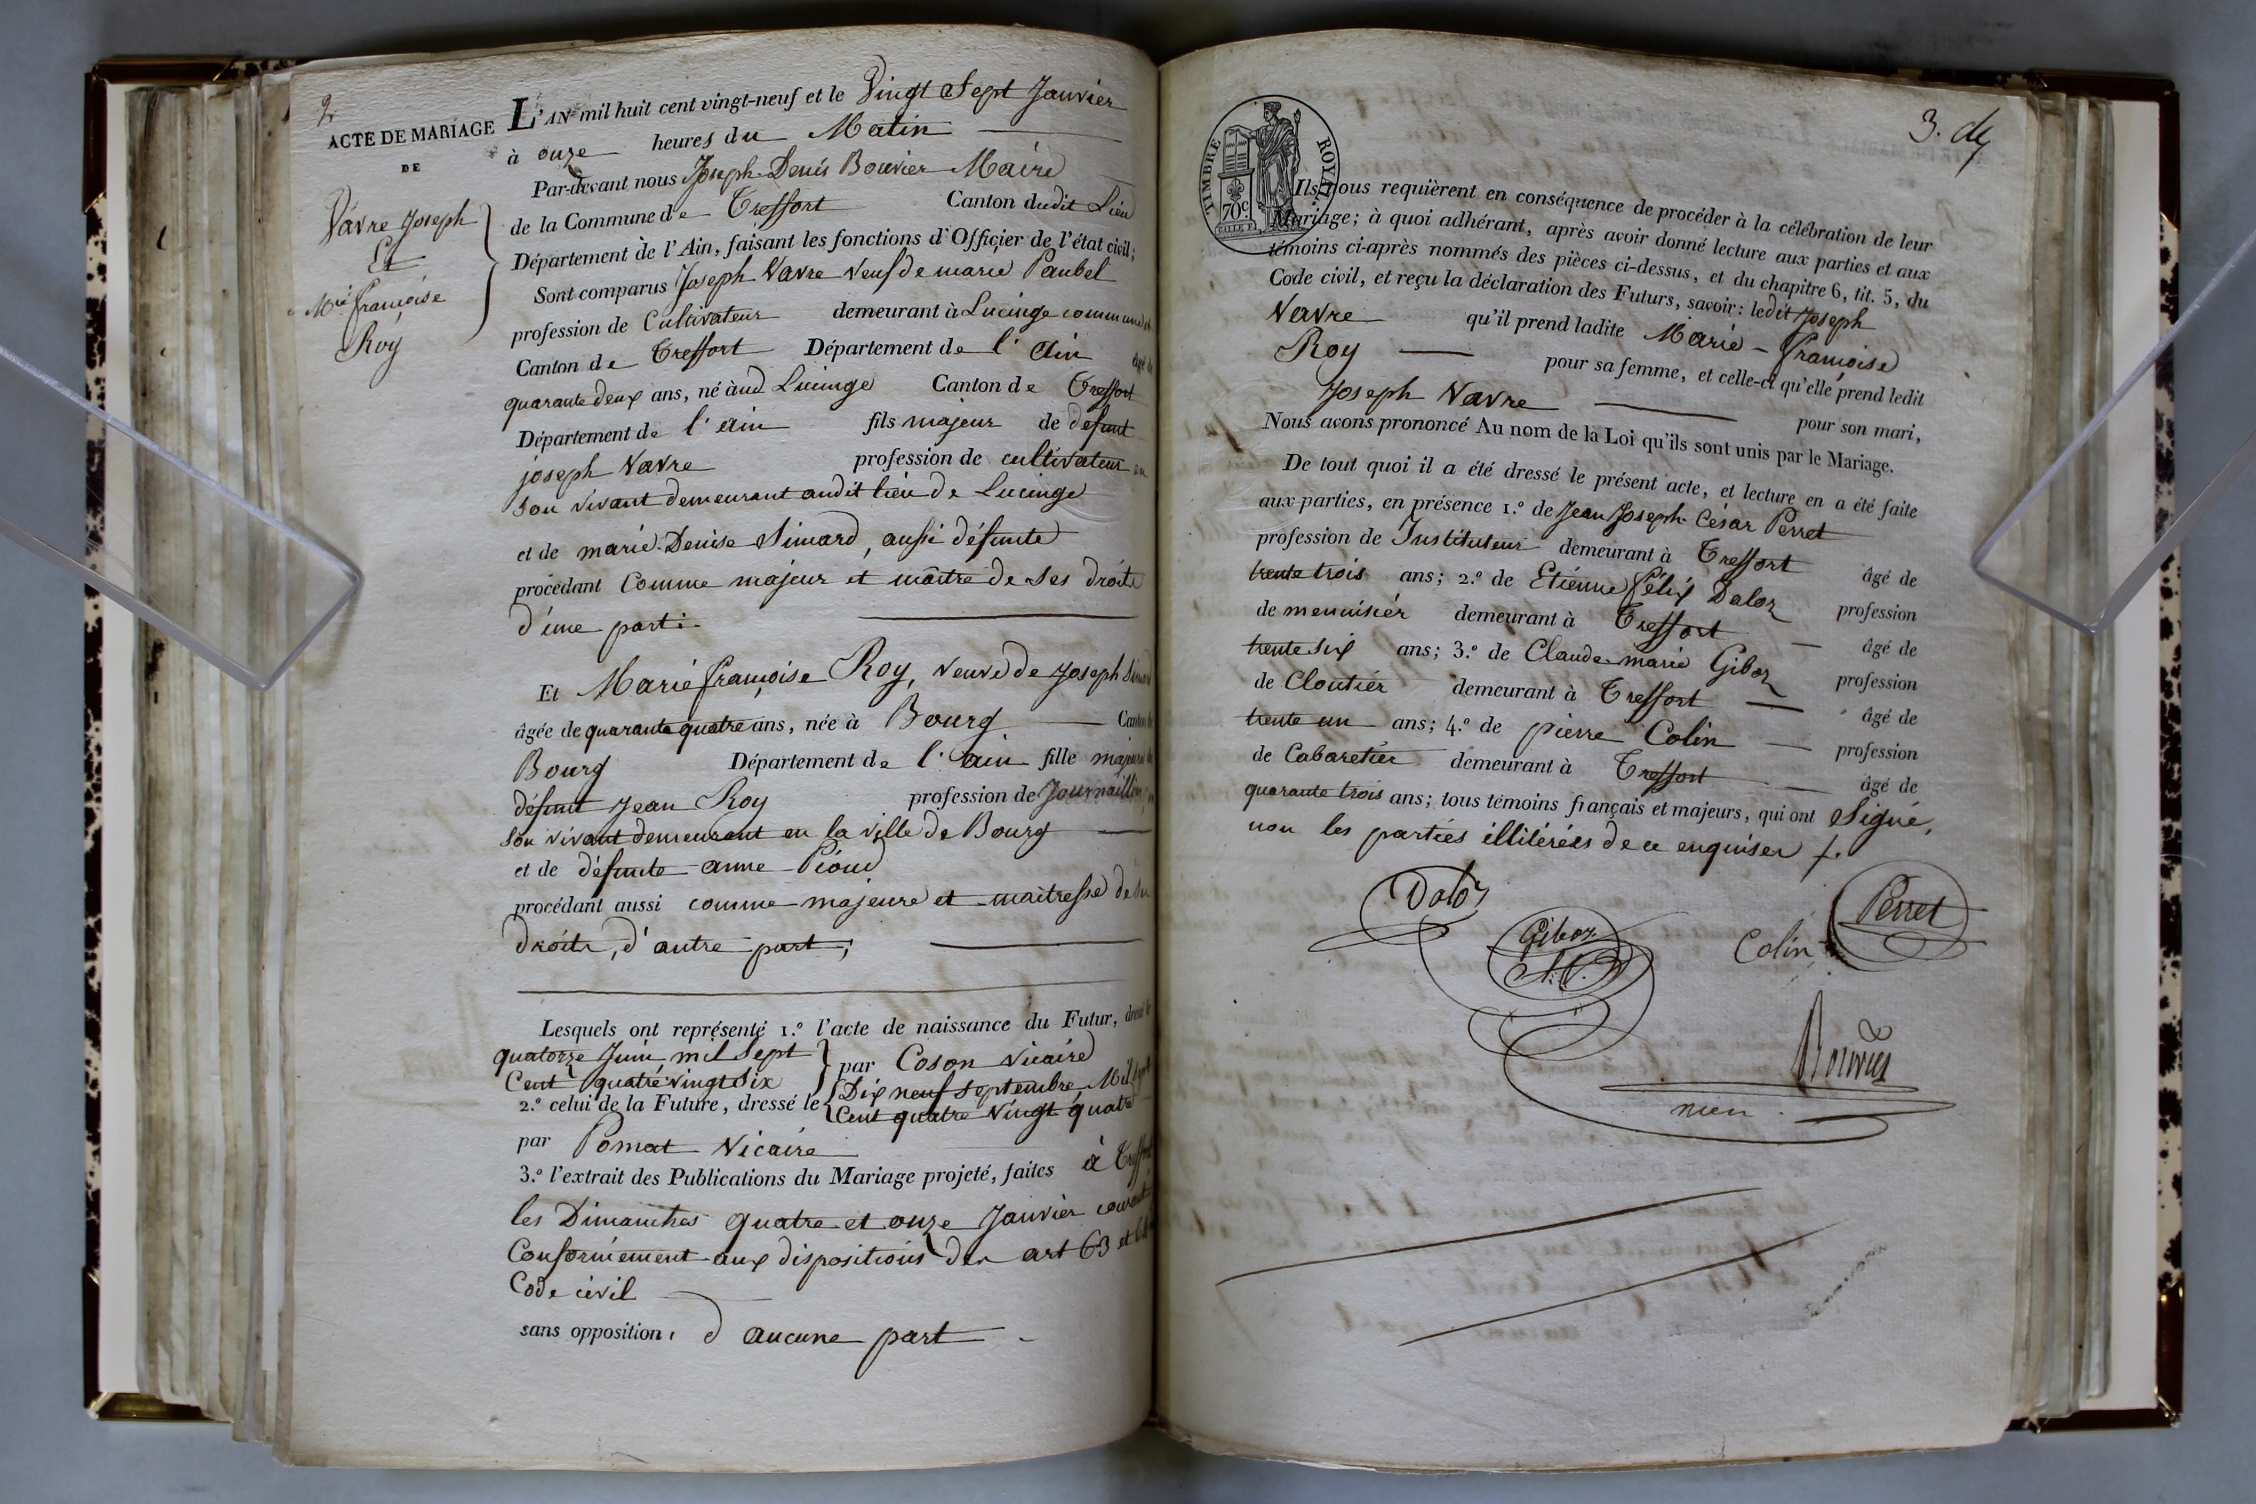 2
ACTE DE MARIAGE
DE
Vavre Joseph
Et
Mie françoise
Roy
L'AN mil huit cent vingt-neuf et le Vingt Sept Janvier
à onze heures du Matin
Par-devant nous Joseph-Denis Bouvier Maire
de la Commune de Treffort Canton dudit Lieu
Département de l'Ain, faisant les fonctions d'Officier de l'état civil;
Sont comparus Joseph Vavre veuf de marie Paubel
profession de Cultivateur demeurant à Lucinge commune et
Canton de Treffort Département de l'ain âgé de
quarante deux ans, né aud Lucinge Canton de Treffort
Département de l'ain fils majeur de defunt
joseph Vavre profession de cultivateur en
son vivant demeurant audit lieu de Lucinge
et de marie-Denise Simard, aussi défunte
procédant Comme majeur et maître de ses droits
d'une part.
Et Marie françoise Roy, veuve de Joseph Simard
âgée de quarante quatre ans, née à Bourg Canton de
Bourg Département de l'ain fille majeure de
défunt Jean Roy profession de Journaillier, en
son vivant demeurant en la ville de Bourg
et de défunte anne Pioud
procédant aussi comme majeure et maitresse de ses
droits, d'autre part;
Lesquels ont représenté 1.º l'acte de naissance du Futur, dressé le
quatorze Juin mil sept
Cent quatre vingt six par Coson vicaire
2.º celui de la Future, dressé le Dix neuf septembre Mil sept
Cent quatre vingt quatre
par Pomat vicaire
3.º l'extrait des Publications du Mariage projeté, faites à Treffort
les Dimanches quatre et onze Janvier courant
Conformement aux dispositions des art 63 et 64
Code civil
sans opposition, d aucune part
3.
TIMBRE ROYAL
70c
Ils nous requièrent en conséquence de procéder à la célébration de leur
Mariage; à quoi adhérant, après avoir donné lecture aux parties et aux
témoins ci-après nommés des pièces ci-dessus, et du chapitre 6, tit. 5, du
Code civil, et reçu la déclaration des Futurs, savoir: ledit Joseph
Vavre qu'il prend ladite Marie-françoise
Roy pour sa femme, et celle-ci qu'elle prend ledit
Joseph Vavre pour son mari,
Nous avons prononcé Au nom de la Loi qu'ils sont unis par le Mariage.
De tout quoi il a été dressé le présent acte, et lecture en a été faite
aux parties, en présence 1.º de Jean Joseph César Perret
profession de Instituteur demeurant à Treffort âgé de
trente trois ans; 2.º de Etienne Félix Daloz profession
de menuisier demeurant à Treffort âgé de
trente six ans; 3.º de Claude-marie Giboz profession
de Cloutier demeurant à Treffort âgé de
trente un ans; 4.º de pierre Colin profession
de Cabaretier demeurant à Treffort âgé de
quarante trois ans; tous témoins français et majeurs, qui ont Signé,
non les parties illitérées de ce enquises
Daloz
Giboz
Colin
Perret
Bouvier